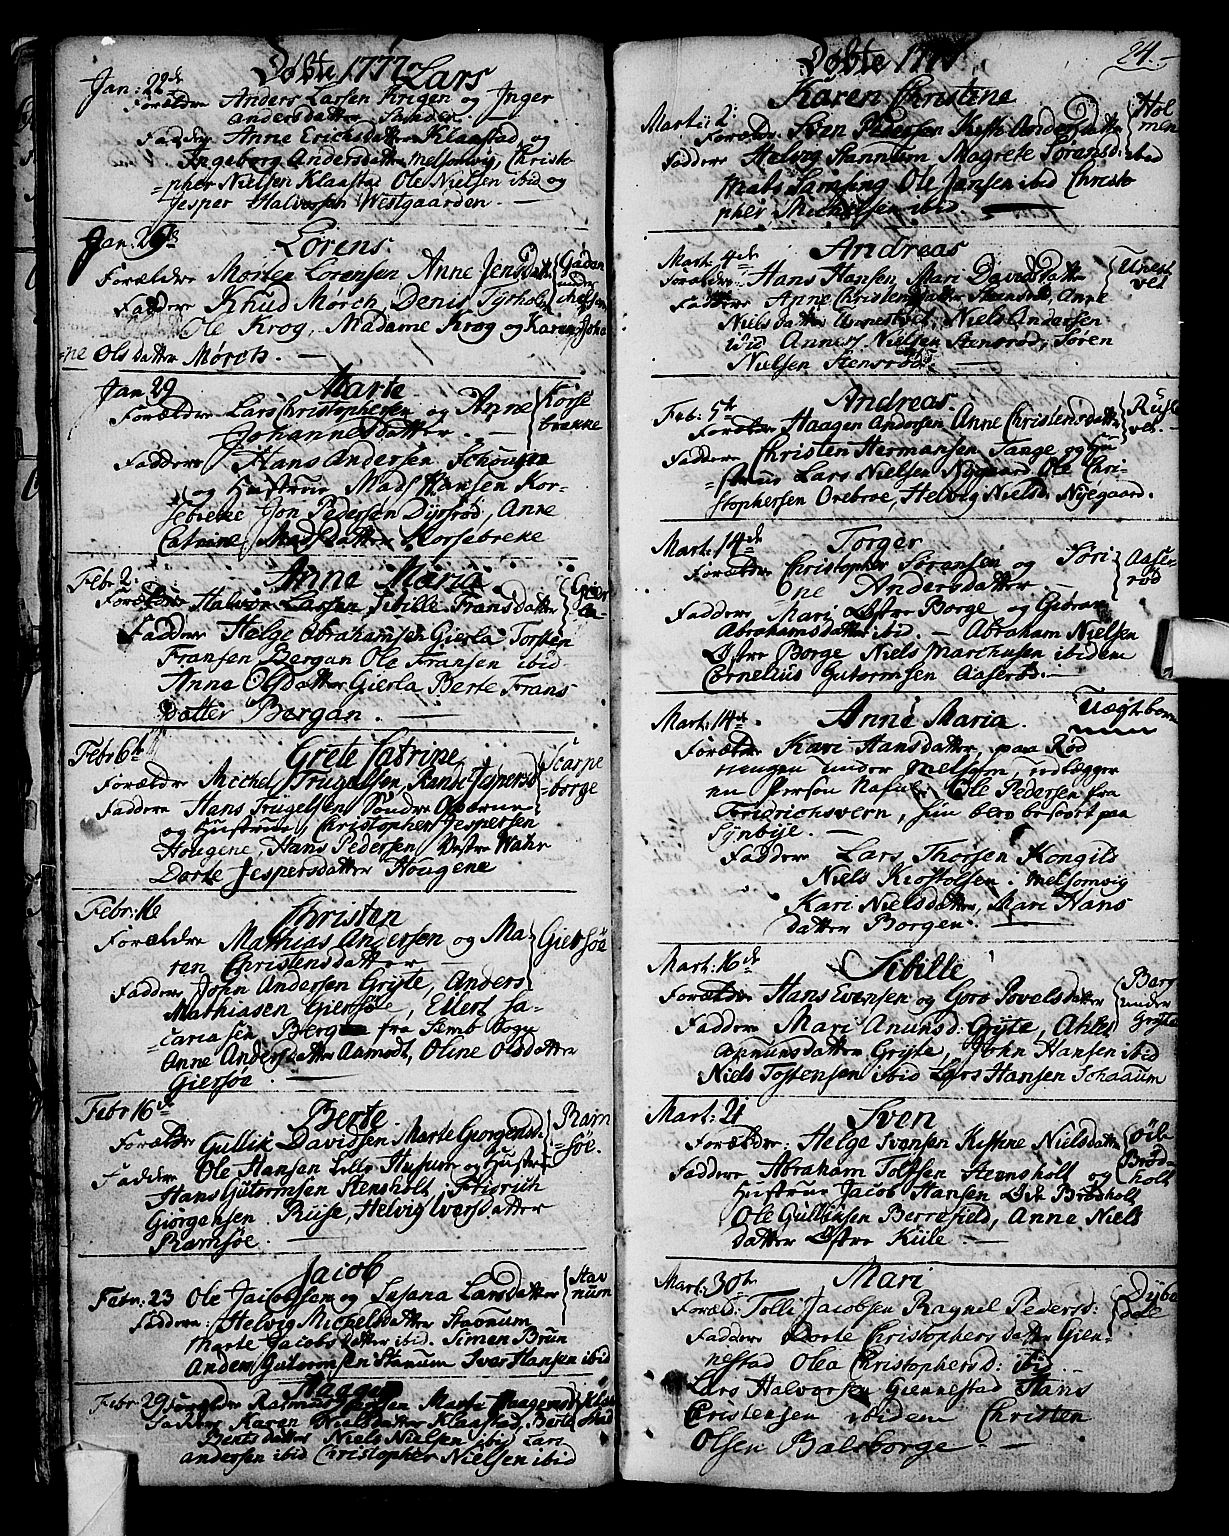 Døbte 1777
Jan: 22de Lars
Forældre Anders Larsen Krigen og Inger
andersdatter
Faddere Anne Erichsdatter Klaastad og
Ingeborg Andersdatter Melsomvig, Christo-
=pher Nielsen Klaastad Ole Nielsen ibid og
Jesper Halvorsen Westgaarden. —
Jan. 26de Lorens.
Forældre Morten Lorensen Anne Jensdatter
Faddere Knud Mørch Denis Tyrholm
Ole Krog, Madame Krog og Karen Joha
ne Olsdatter Mørch. —
Jan 29 Marte
Forældre Lars Christophersen og Anne Korse
Johannesdatter. — brække
Faddere Hans Andersen Schougen
og Hustrue Mads Hansen Kor-
sebreke Jon Pedersen Dyrsrød, Anne
Catrine Madsdatter Korsebreke
Febr 2: Anna Maria
Forældre Halvor Larsen Sibille Fransdatter Gier
la
Faddere Helge Abrahamsen Gierla Torsten
Fransen Bergan Ole Fransen ibid
Anne Olsdatter Gierla Berte Frans
datter Bergan. —
Febr 6te Grete Catrine
Forældre Michel Trugelsen, Rande Jespersd Scarpe
=borge
Faddere Hans Trugelsen Søndre
og Hustrue, Christopher Jespersen
Hougene, Hans Pedersen Vestre Wahr
Dorte Jespersdatter Hougene
Febr: 16 Christen
Forældre Mathias Andersen og Ma Giersøe
ren Christensdatter —
Faddere John Andersen Gryte, Anders
Mathiasen Giersøe, Ellert Sa-
=cariasen Berge fra Semb Sogn
Anne Andersdatter Aamodt, Oline Olsdatter
Giersøe. —
Febr 16de Berte Ram
=søe.
Forældre Gullik Davidsen Marte Georgensd:
Faddere Ole Hansen Lille Husum og Hustrue
Hans Gutormsen Stensholt, Fridrich
Giørgensen Ruse, Helvig Iversdatter
Ramsøe. —
Jacob
Febr: 23 Ole Jacobsen og Susana Larsdatter Stav
num
Faddere: Helvig Michelsdatter Stavnum
Marte Jacobsdatter ibid. Simen Brun
Anders Gutormsen Stanum Iver Hansen ibid
Haagen
Febr 29 Forældre Rasmus Marte Haagensd
Faddere Karen Nielsdatter Klaastad, Berte
Bentsdatter Niels Nielsen ibid Lars
andersen ibid Christopher Nielsen ibid
Døbte 1777. 24. —
Karen Christine
Marti: 2: Forældre Sven Pedersen Kisti Andersdatter Hol
men
Faddere Helvig Stannum Magrete Sørensd: ibid
Mats Lamsing Ole Jansen ibid Christo
pher Michelsen ibid —
Mart. 4de Andreas
Forældre Hans Hansen Mari Davidsdatter
vet
Faddere Anne Christensdatter Stensrød, Anne
Nielsdatter Unnestvet, Niels Andersen
ibid Anners Nielsen Stensrød, Søren
Nielsen Stensrød. —
Feb: 5te Andreas.
Forældre Haagen Andersen Anne Christensdatter
vet.
Faddere Christen Hermansen Tange og hu-
strue Lars Nielsen Nygaard Ole Chri-
stophersen Orebroe, Helvig Nielsd: Nyegaard.
Mart: 14de Torger
Forældre Christopher Sørensen og Søri Aase
rød
One Andersdatter. —
Faddere Mari Østre Borge og Giøran
Abrahamsdatter ibid. — Abraham Nielsen
Østre Borge Niels Marchusen ibidem
Cornelius Gutormsen Aaserød. —
Mart: 14de Anne Maria. Uægtebarn
Forældre Kari Hansdatter paa Rød
eugen under Melsom, udlægger
en Person Nafn: Ole Pedersen fra
Fridrichsvern, hun blev besovet paa
Synbye. —
Faddere Lars Thorsen Kongils
Niels Krostofsen: Melsomvig
Kari Nielsdatter, Mari Hans
datter Borgen. —
Mart: 16de Sibille
Forældre Hans Evensen og Goro Povelsdatter Berg
under
Gryte
Faddere Mari Amunsd: Gryte,
Amunsdatter Gryte, John Hansen ibid
Niels Tostensen ibid Lars Hansen Schaaum
Mart: 21 Sven
Forældre: Helge Svensen Kistine Nielsdatter
Brød-
holt
Faddere Abraham Tolfsen Stensholt og
Hustrue Jacob Hansen Brødholt
Ole Gullichsen Berrefield, Anne Niels
datter Østre Kiile —
Mart: 30te Mari
Foræld: Tolli Jacobsen Ragnel Pedersd: Dybe
dal
Faddere Dorte Christophersdatter Gien-
nestad Olea Christophersd: ibid.
Lars Halvorsen Giennestad Hans
Christensen ibidem Christen
Olsen Balsborge —